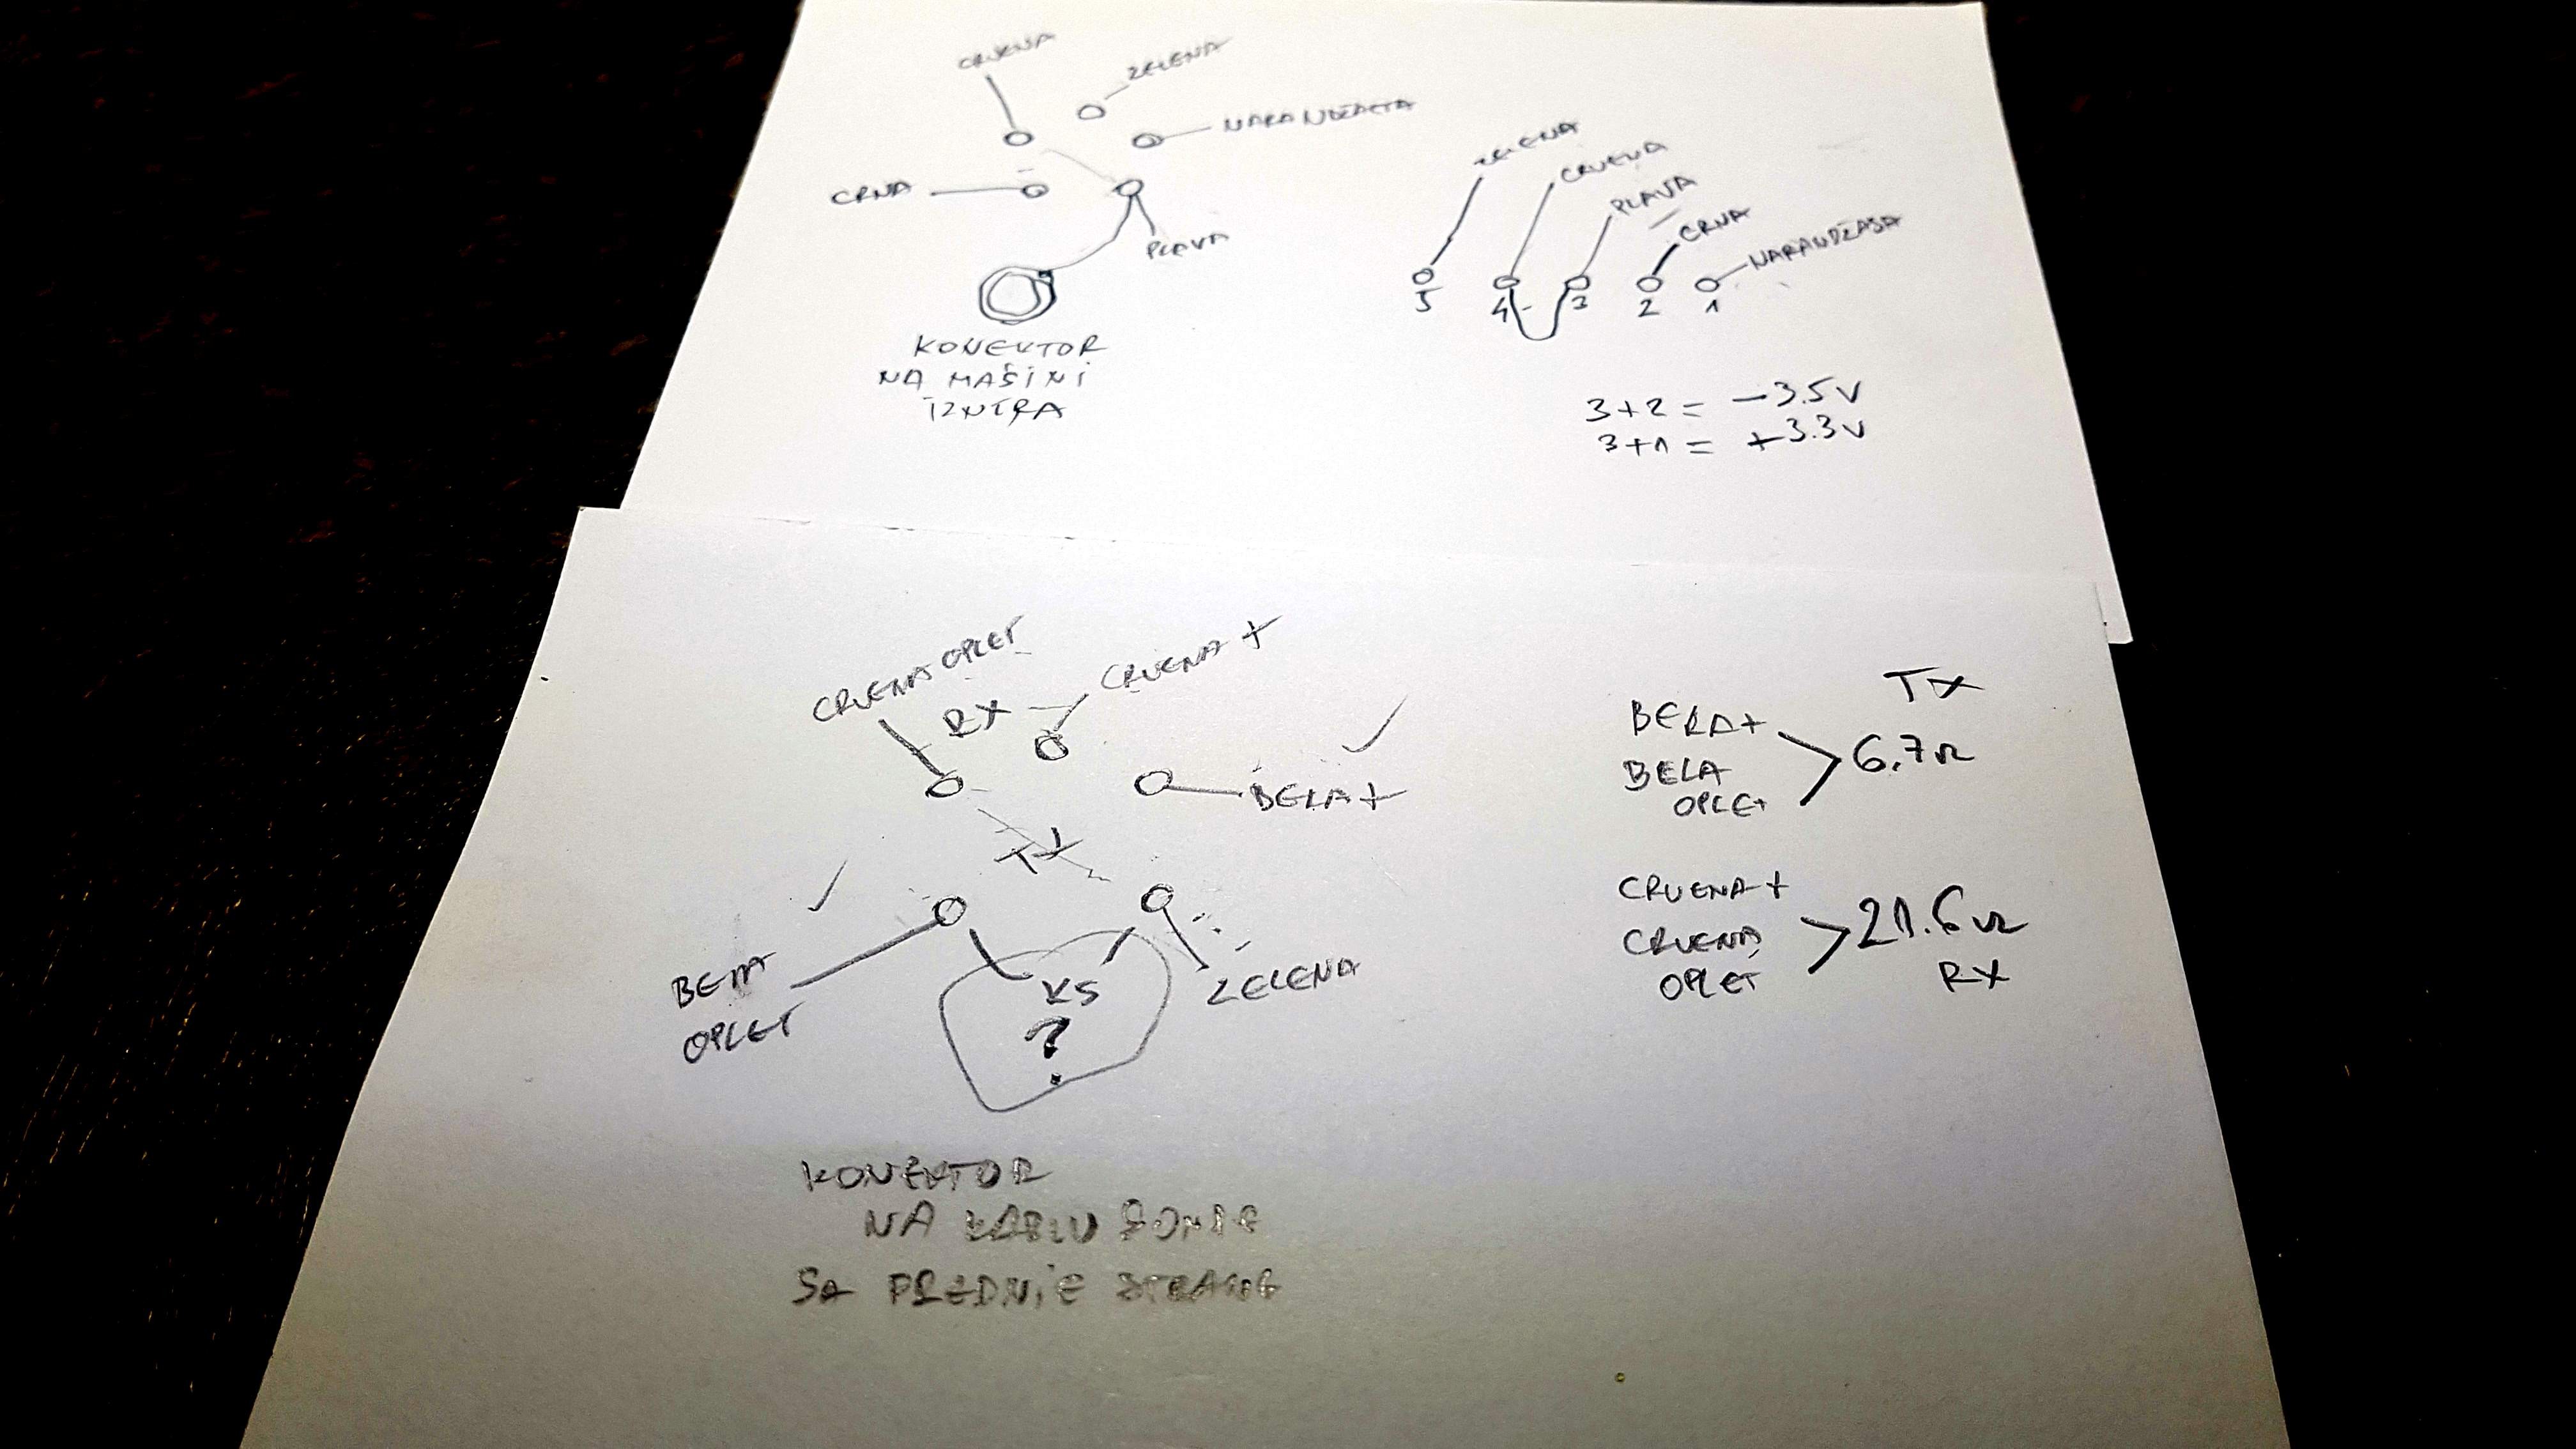 CRVENA
ZELENA
NARANDŽASTA
CRNA
PLAVA
KONEKTOR
NA MAŠINI
IZNTRA
ZELENA
CRVENA
PLAVA
CRNA
NARANDŽASA
5 4 3 2 1
3+2 = -3.5V
3+1 = +3.3V
CRVENA OPLET
CRVENA +
RX
BELA+
TX
BELA
OPLET
KS
?
ZELENA
KONEKTOR
NA KABLU SONDE
SA PREDNJE STRANE
TX
BELA+
BELA
OPLET
6.7Ω
CRVENA+
CRVENA
OPLET
21.6Ω
RX